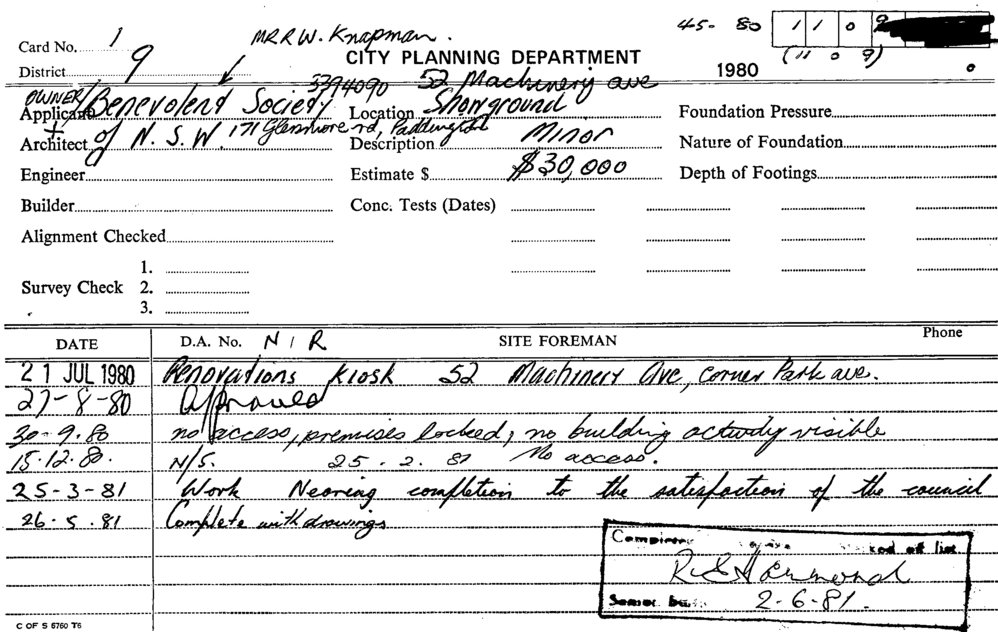 45- 80 1109
Card No. 1 MR R W. Knapman. (11 0 9)
CITY PLANNING DEPARTMENT
District 9 1980
3394090 52 Machinery ave
OWNER/ Applicant Benevolent Society Location Showground Foundation Pressure
+ Architect of N.S.W. 171 Glenmore rd, Paddington Description Minor Nature of Foundation
Engineer Estimate $ $30,000 Depth of Footings
Builder Conc. Tests (Dates)
Alignment Checked
1.
Survey Check 2.
3.
DATE D.A. No. N / R SITE FOREMAN Phone
21 JUL 1980 Renovations Kiosk 52 Machinery Ave, corner Park ave.
27-8-80 Approved
30-9.80 no access, premises locked, no building activity visible
15.12.80. N/S. 25.2.81 No access.
25-3-81 Work Nearing completion to the satisfaction of the council
26.5.81 Complete with drawings
off list
2-6-81.
C OF S 6760 T6